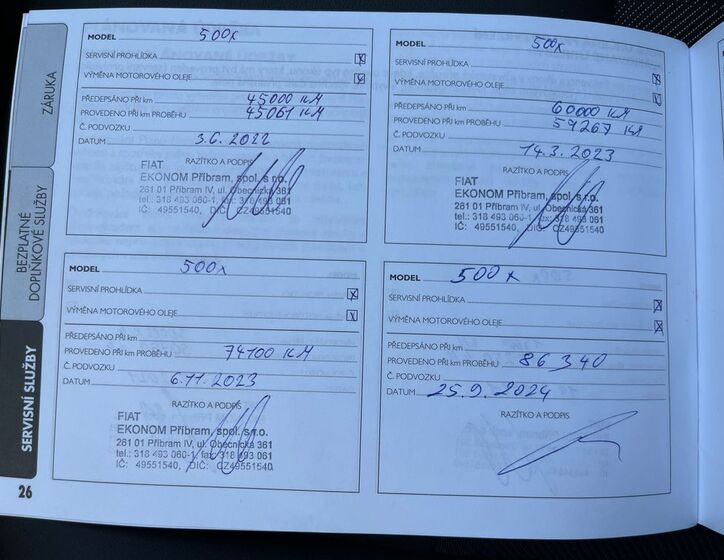 ZÁRUKA
BEZPLATNÉ
DOPLŇKOVÉ SLUŽBY
SERVISNÍ SLUŽBY
MODEL 500x
SERVISNÍ PROHLÍDKA
VÝMĚNA MOTOROVÉHO OLEJE
PŘEDEPSÁNO PŘI km 45000 KM
PROVEDENO PŘI KM PROBĚHU 45061 KM
Č. PODVOZKU
DATUM 3.6. 2022
RAZÍTKO A PODPIS
FIAT
EKONOM Příbram, spol. s r.o.
261 01 Příbram IV, ul. Obecnická 361
tel.: 318 493 060-1, fax: 318 493 061
IČ: 49551540, DIČ: CZ49551540
MODEL 500x
SERVISNÍ PROHLÍDKA
VÝMĚNA MOTOROVÉHO OLEJE
PŘEDEPSÁNO PŘI km 60000 KM
PROVEDENO PŘI KM PROBĚHU 59267 KM
Č. PODVOZKU
DATUM 14.3. 2023
RAZÍTKO A PODPIS
FIAT
EKONOM Příbram, spol. s r.o.
261 01 Příbram IV, ul. Obecnická 361
tel.: 318 493 060-1, fax: 318 493 061
IČ: 49551540, DIČ: CZ49551540
MODEL 500x
SERVISNÍ PROHLÍDKA
VÝMĚNA MOTOROVÉHO OLEJE
PŘEDEPSÁNO PŘI km
PROVEDENO PŘI KM PROBĚHU 74100 KM
Č. PODVOZKU
DATUM 6.11. 2023
RAZÍTKO A PODPIS
FIAT
EKONOM Příbram, spol. s r.o.
261 01 Příbram IV, ul. Obecnická 361
tel.: 318 493 060-1, fax: 318 493 061
IČ: 49551540, DIČ: CZ49551540
MODEL 500x
SERVISNÍ PROHLÍDKA
VÝMĚNA MOTOROVÉHO OLEJE
PŘEDEPSÁNO PŘI km
PROVEDENO PŘI KM PROBĚHU 86 340
Č. PODVOZKU
DATUM 25.9. 2024
RAZÍTKO A PODPIS
26